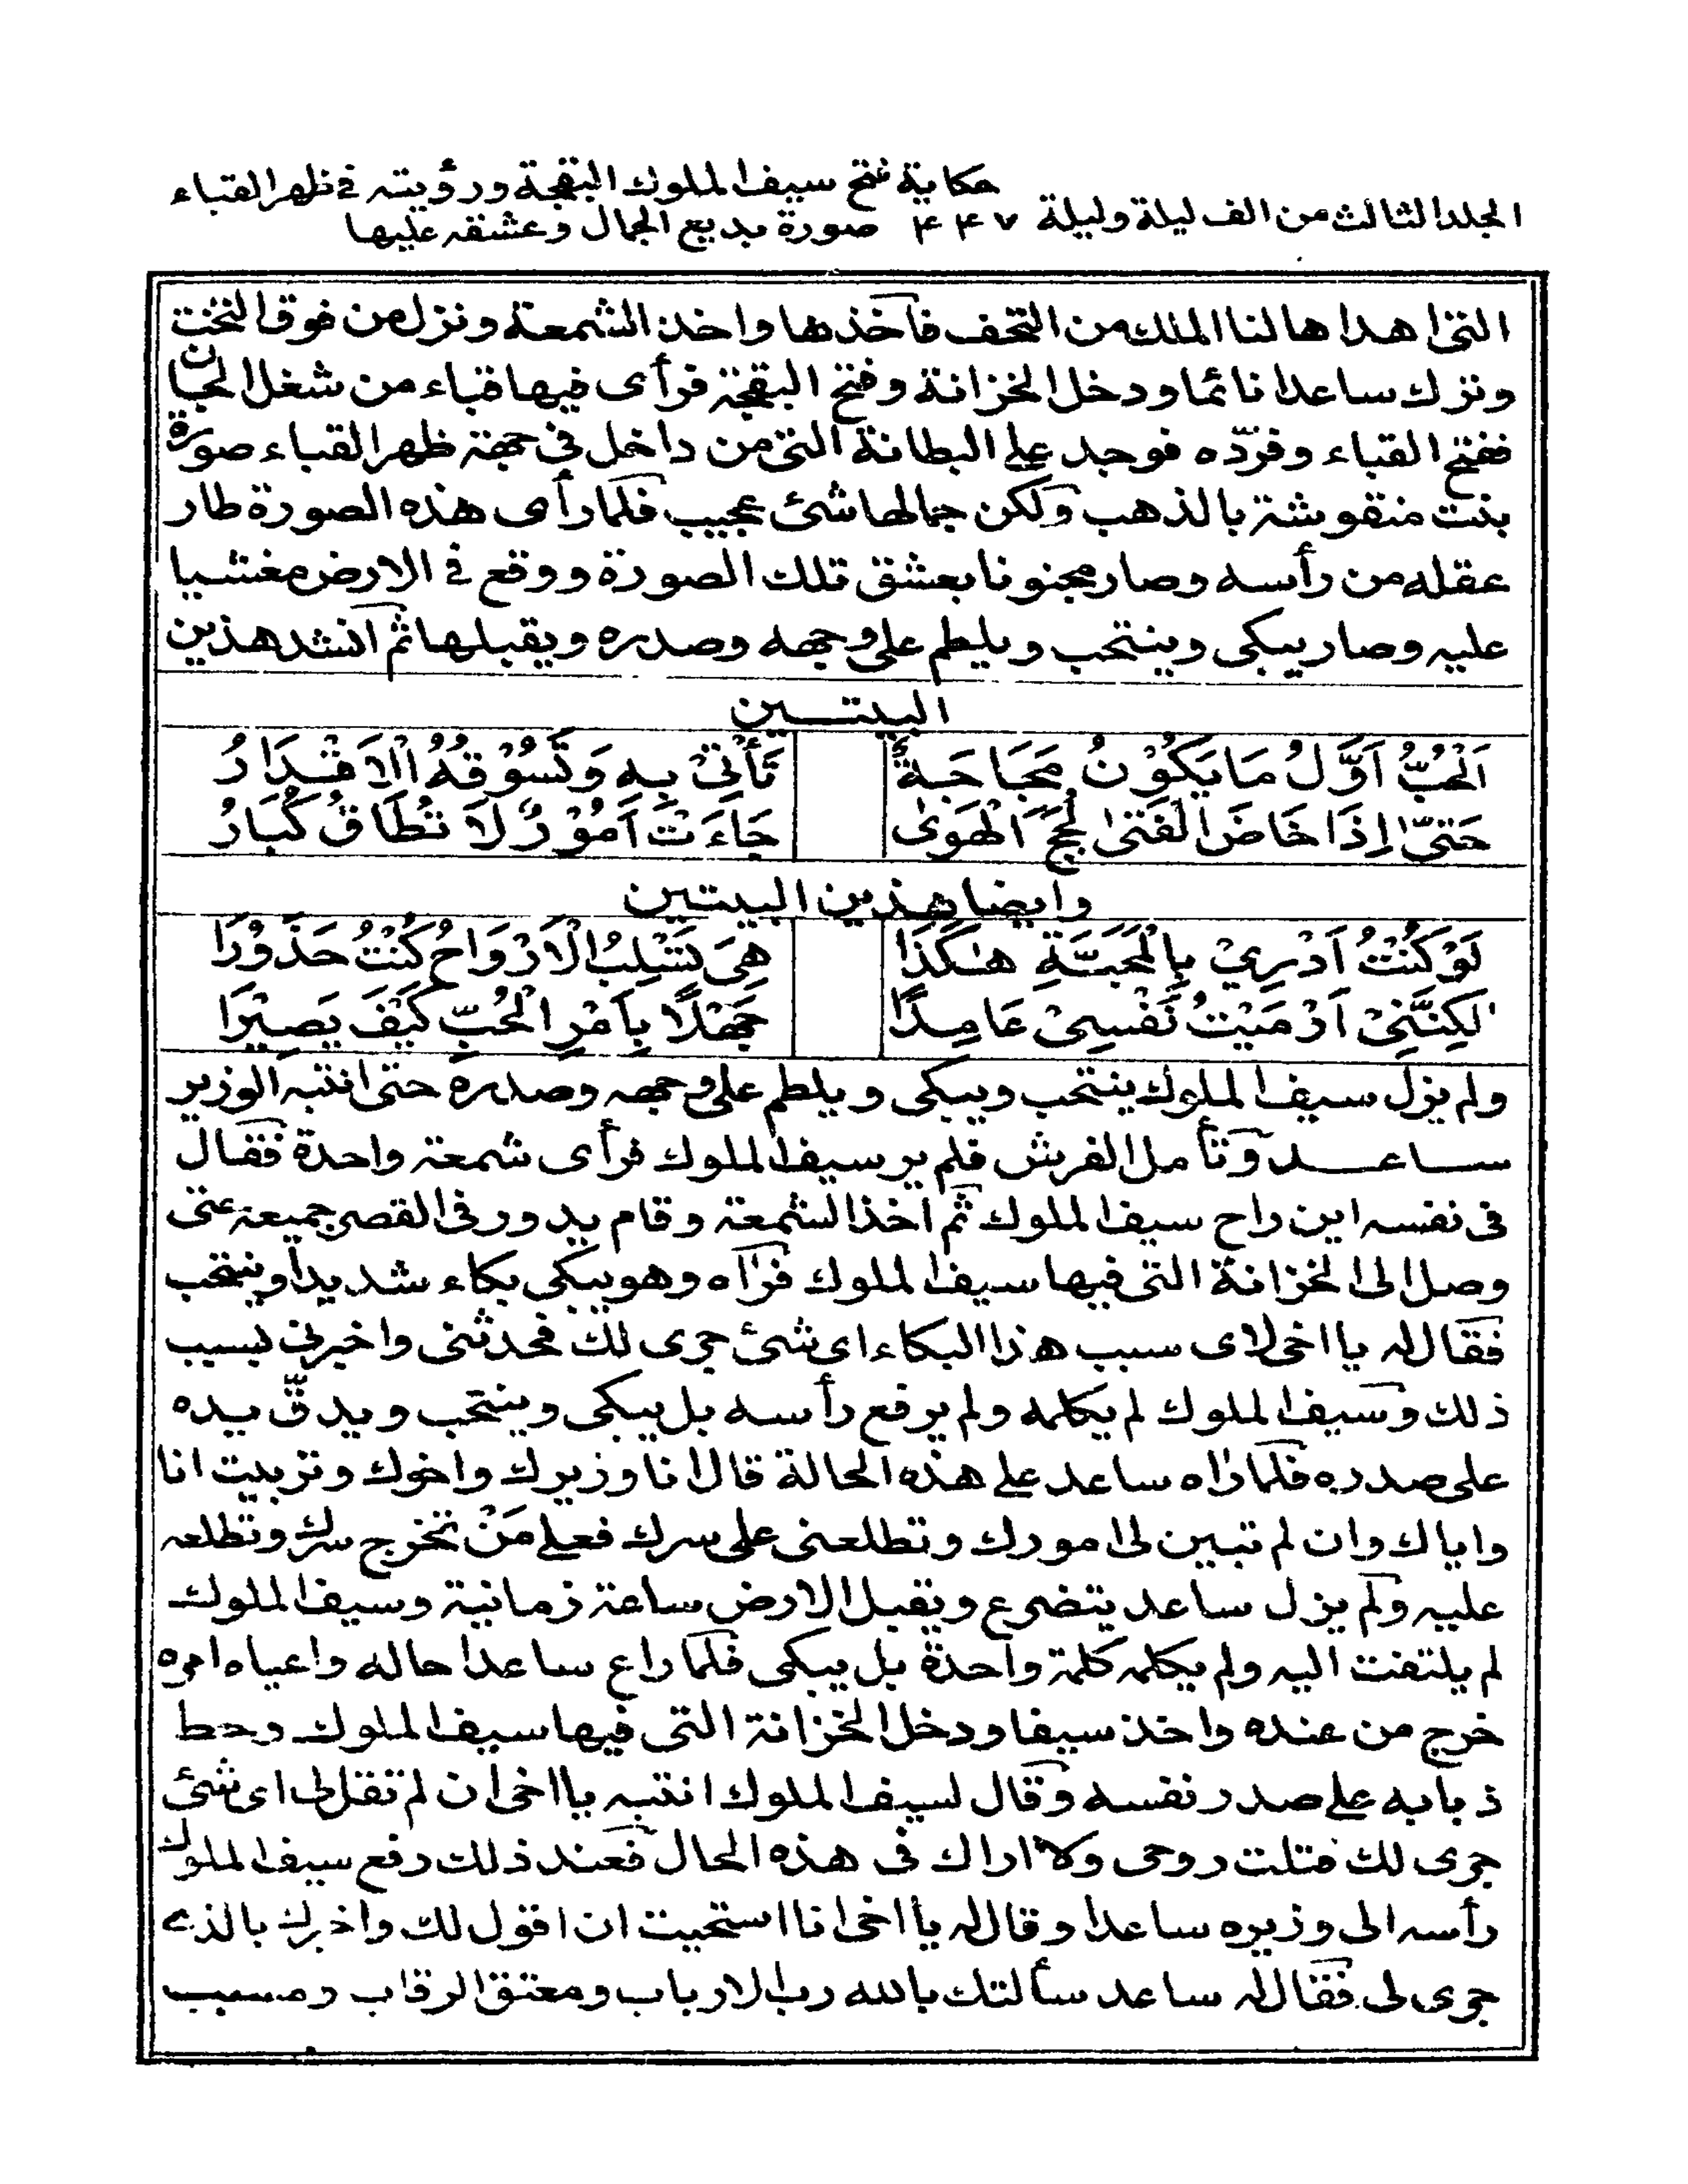 حكاية فتح سيف الملوك البقجة ورؤيته في ظهر القباء
المجلد الثالث من الف ليلة وليلة ٤٤٧ صورة بديع الجمال وعشقه عليها
التى اهداها لنا الملك من التحف فاخذها واخذ الشمعة ونزل من فوق التخت
وترك ساعدا نائما ودخل الخزانة وفتح البقجة فرأى فيها قباء من شغل الجان
ففتح القباء وفرّده فوجد على البطانة التى من داخل في جهة ظهر القباء صورة
بنت منقوشة بالذهب ولكن جمالها شئ عجيب فلما رأى هذه الصورة طار
عقله من رأسه وصار مجنونا بعشق تلك الصورة ووقع في الارض مغشيا
عليه وصار يبكى وينتحب ويلطم على وجهه وصدره ويقبلها ثم انشد هذين
البيتـــين
اَلْحُبُّ اَوَّلُ مَا يَكُوْنُ مَجَاجَةٌ تَأْتِيْ بِهِ وَتَسُوْقُهُ الْاَقْدَارُ
حَتىّٰ اِذَا خَاضَ الْفَتىٰ لُجَجَ الْهَوىٰ جَاءَتْ اُمُوْرٌ لَا تُطَاقُ كُبَارُ
وايضا هذين البيتين
لَوْ كُنْتُ اَدْرِيْ بِالْمَحَبَّةِ هٰكَذَا هِيَ تَسْلِبُ الْاَرْوَاحَ كُنْتُ حَذُوْرًا
لٰكِنَّنِيْ اَرْمَيْتُ نَفْسِيْ عَامِدًا جَهْلًا بِاَمْرِ الْحُبِّ كَيْفَ يَصِيْرَا
ولم يزل سيف الملوك ينتحب ويبكى ويلطم على وجهه وصدره حتى انتبه الوزير
ســاعــد وتأمل الفرش فلم ير سيف الملوك فرأى شمعة واحدة فقال
فى نفسه اين راح سيف الملوك ثم اخذ الشمعة وقام يدور فى القصر جميعه حتى
وصل الى الخزانة التى فيها سيف الملوك فرآه وهو يبكى بكاء شديدا وينتحب
فقال له يا اخى لاى سبب هذا البكاء اى شئ جرى لك فحدثنى واخبرنى بسبب
ذلك وسيف الملوك لم يكلمه ولم يرفع رأسه بل يبكى وينتحب ويدقّ بيده
على صدره فلما رآه ساعد على هذه الحالة قال انا وزيرك واخوك وتربيت انا
واياك وان لم تبين لى امورك وتطلعنى على سرك فعلى مَنْ تخرج سرك وتطلعه
عليه ولم يزل ساعد يتضرع ويقبل الارض ساعة زمانية وسيف الملوك
لم يلتفت اليه ولم يكلمه كلمة واحدة بل يبكى فلما راع ساعدا حاله واعياه امره
خرج من عنده واخذ سيفا ودخل الخزانة التى فيها سيف الملوك وحط
ذبابه على صدر نفسه وقال لسيف الملوك انتبه يا اخى ان لم تقل لى اى شئ
جرى لك قتلت روحى ولا اراك فى هذه الحال فعند ذلك رفع سيف الملوك
رأسه الى وزيره ساعدا وقال له يا اخى انا استحيت ان اقول لك واخبرك بالذى
جرى لى فقال له ساعد سألتك بالله رب الارباب ومعتق الرقاب ومسبب